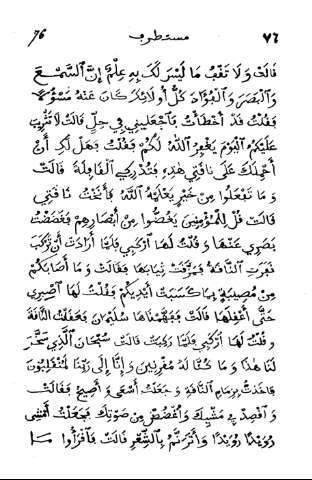 76 مستطرف ٧٦
قالت ولا تقف ما ليس لك به علم إن السمع
والبصر والفؤاد كل أولئك كان عنه مسؤلا
فقلت قد أخطأت فاجعليني في حل قالت لا تثريب
عليكم اليوم يغفر الله لكم فقلت فهل لك أن
أحملك على ناقتي هذه فتدركي القافلة قالت
وما تفعلوا من خير يعلمه الله فأنخت ناقتي
قالت قل للمؤمنين يغضوا من أبصارهم فغضضت
بصري عنها وقلت لها اركبي فلما أرادت أن تركب
نفرت الناقة فمزقت ثيابها فقالت وما أصابكم
من مصيبة فبما كسبت أيديكم فقلت لها اصبري
حتى أعقلها قالت ففهمناها سليمن فعقلت الناقة
وقلت لها اركبي فلما ركبت قالت سبحان الذي سخر
لنا هذا وما كنا له مقرنين وإنا إلى ربنا لمنقلبون
فأخذت بزمام الناقة وجعلت أسعى وأصيح فقالت
واقصد في مشيك واغضض من صوتك فجعلت أمشي
رويدا رويدا وأترنم بالشعر قالت فاقرأوا ما